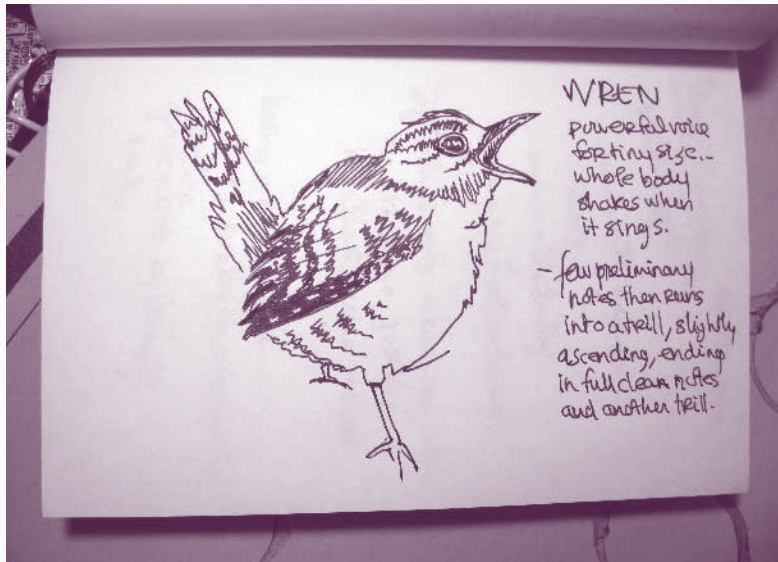 WREN
powerful voice
for tiny size..
whole body
shakes when
it sings.
- few preliminary
notes then runs
into a trill, slightly
ascending, ending
in full clear notes
and another trill.